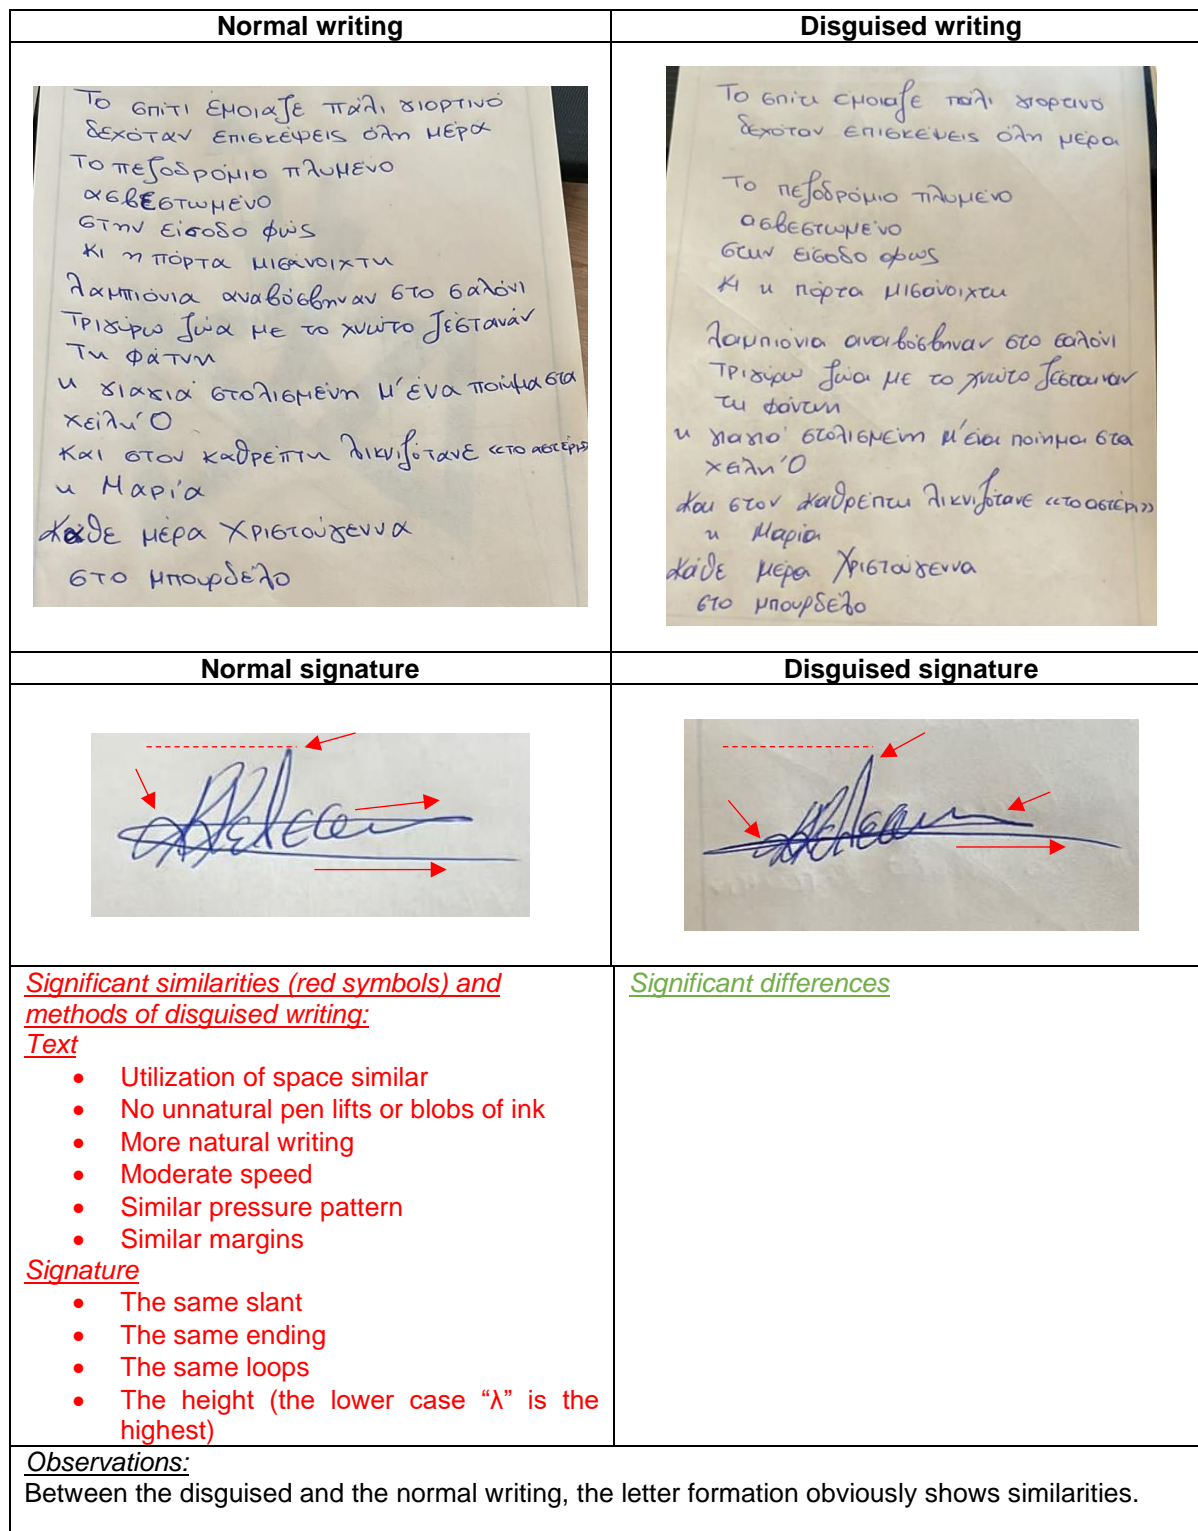 Normal writing
Disguised writing
Το σπίτι έμοιαζε πάλι γιορτινό
δεχόταν επισκέψεις όλη μέρα
Το πεζοδρόμιο πλυμένο
ασβεστωμένο
στην είσοδο φως
κι η πόρτα μισάνοιχτη
λαμπιόνια αναβόσβηναν στο σαλόνι
Τριγύρω ζώα με το χνώτο ζέσταναν
τη φάτνη
η γιαγιά στολισμένη μ'ένα ποίημα στα
χείλη Ό
Και στον καθρέπτη λικνιζότανε «το αστέρι»
η Μαρία
Κάθε μέρα Χριστούγεννα
στο μπουρδέλο
Το σπίτι έμοιαζε πάλι γιορτινό
δεχόταν επισκέψεις όλη μέρα
Το πεζοδρόμιο πλυμένο
ασβεστωμένο
στην είσοδο φως
κι η πόρτα μισάνοιχτη
λαμπιόνια αναβόσβηναν στο σαλόνι
Τριγύρω ζώα με το χνώτο ζέσταιναν
τη φάτνη
η γιαγιά στολισμένη μ'ένα ποίημα στα
χείλη Ό
Και στον καθρέπτη λικνιζότανε «το αστέρι»
η Μαρία
Κάθε μέρα Χριστούγεννα
στο μπουρδέλο
Normal signature
Disguised signature
Significant similarities (red symbols) and
methods of disguised writing:
Text
• Utilization of space similar
• No unnatural pen lifts or blobs of ink
• More natural writing
• Moderate speed
• Similar pressure pattern
• Similar margins
Signature
• The same slant
• The same ending
• The same loops
• The height (the lower case “λ” is the
highest)
Significant differences
Observations:
Between the disguised and the normal writing, the letter formation obviously shows similarities.